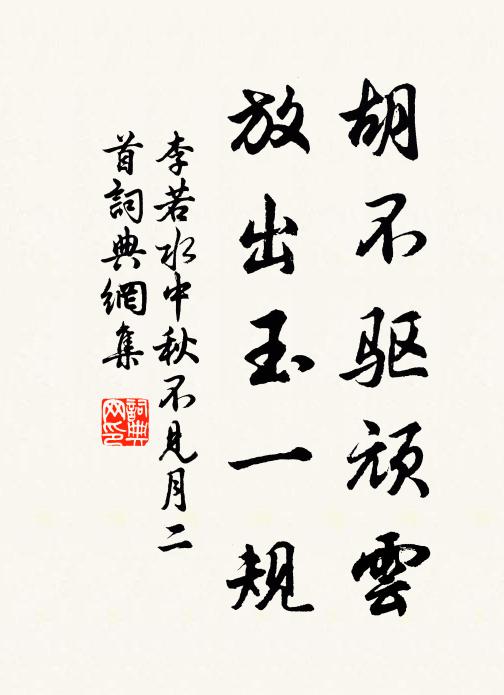 胡不驱頑雲
放出玉一规
李若水中秋不見月二
首詞典網集
詞典
网印